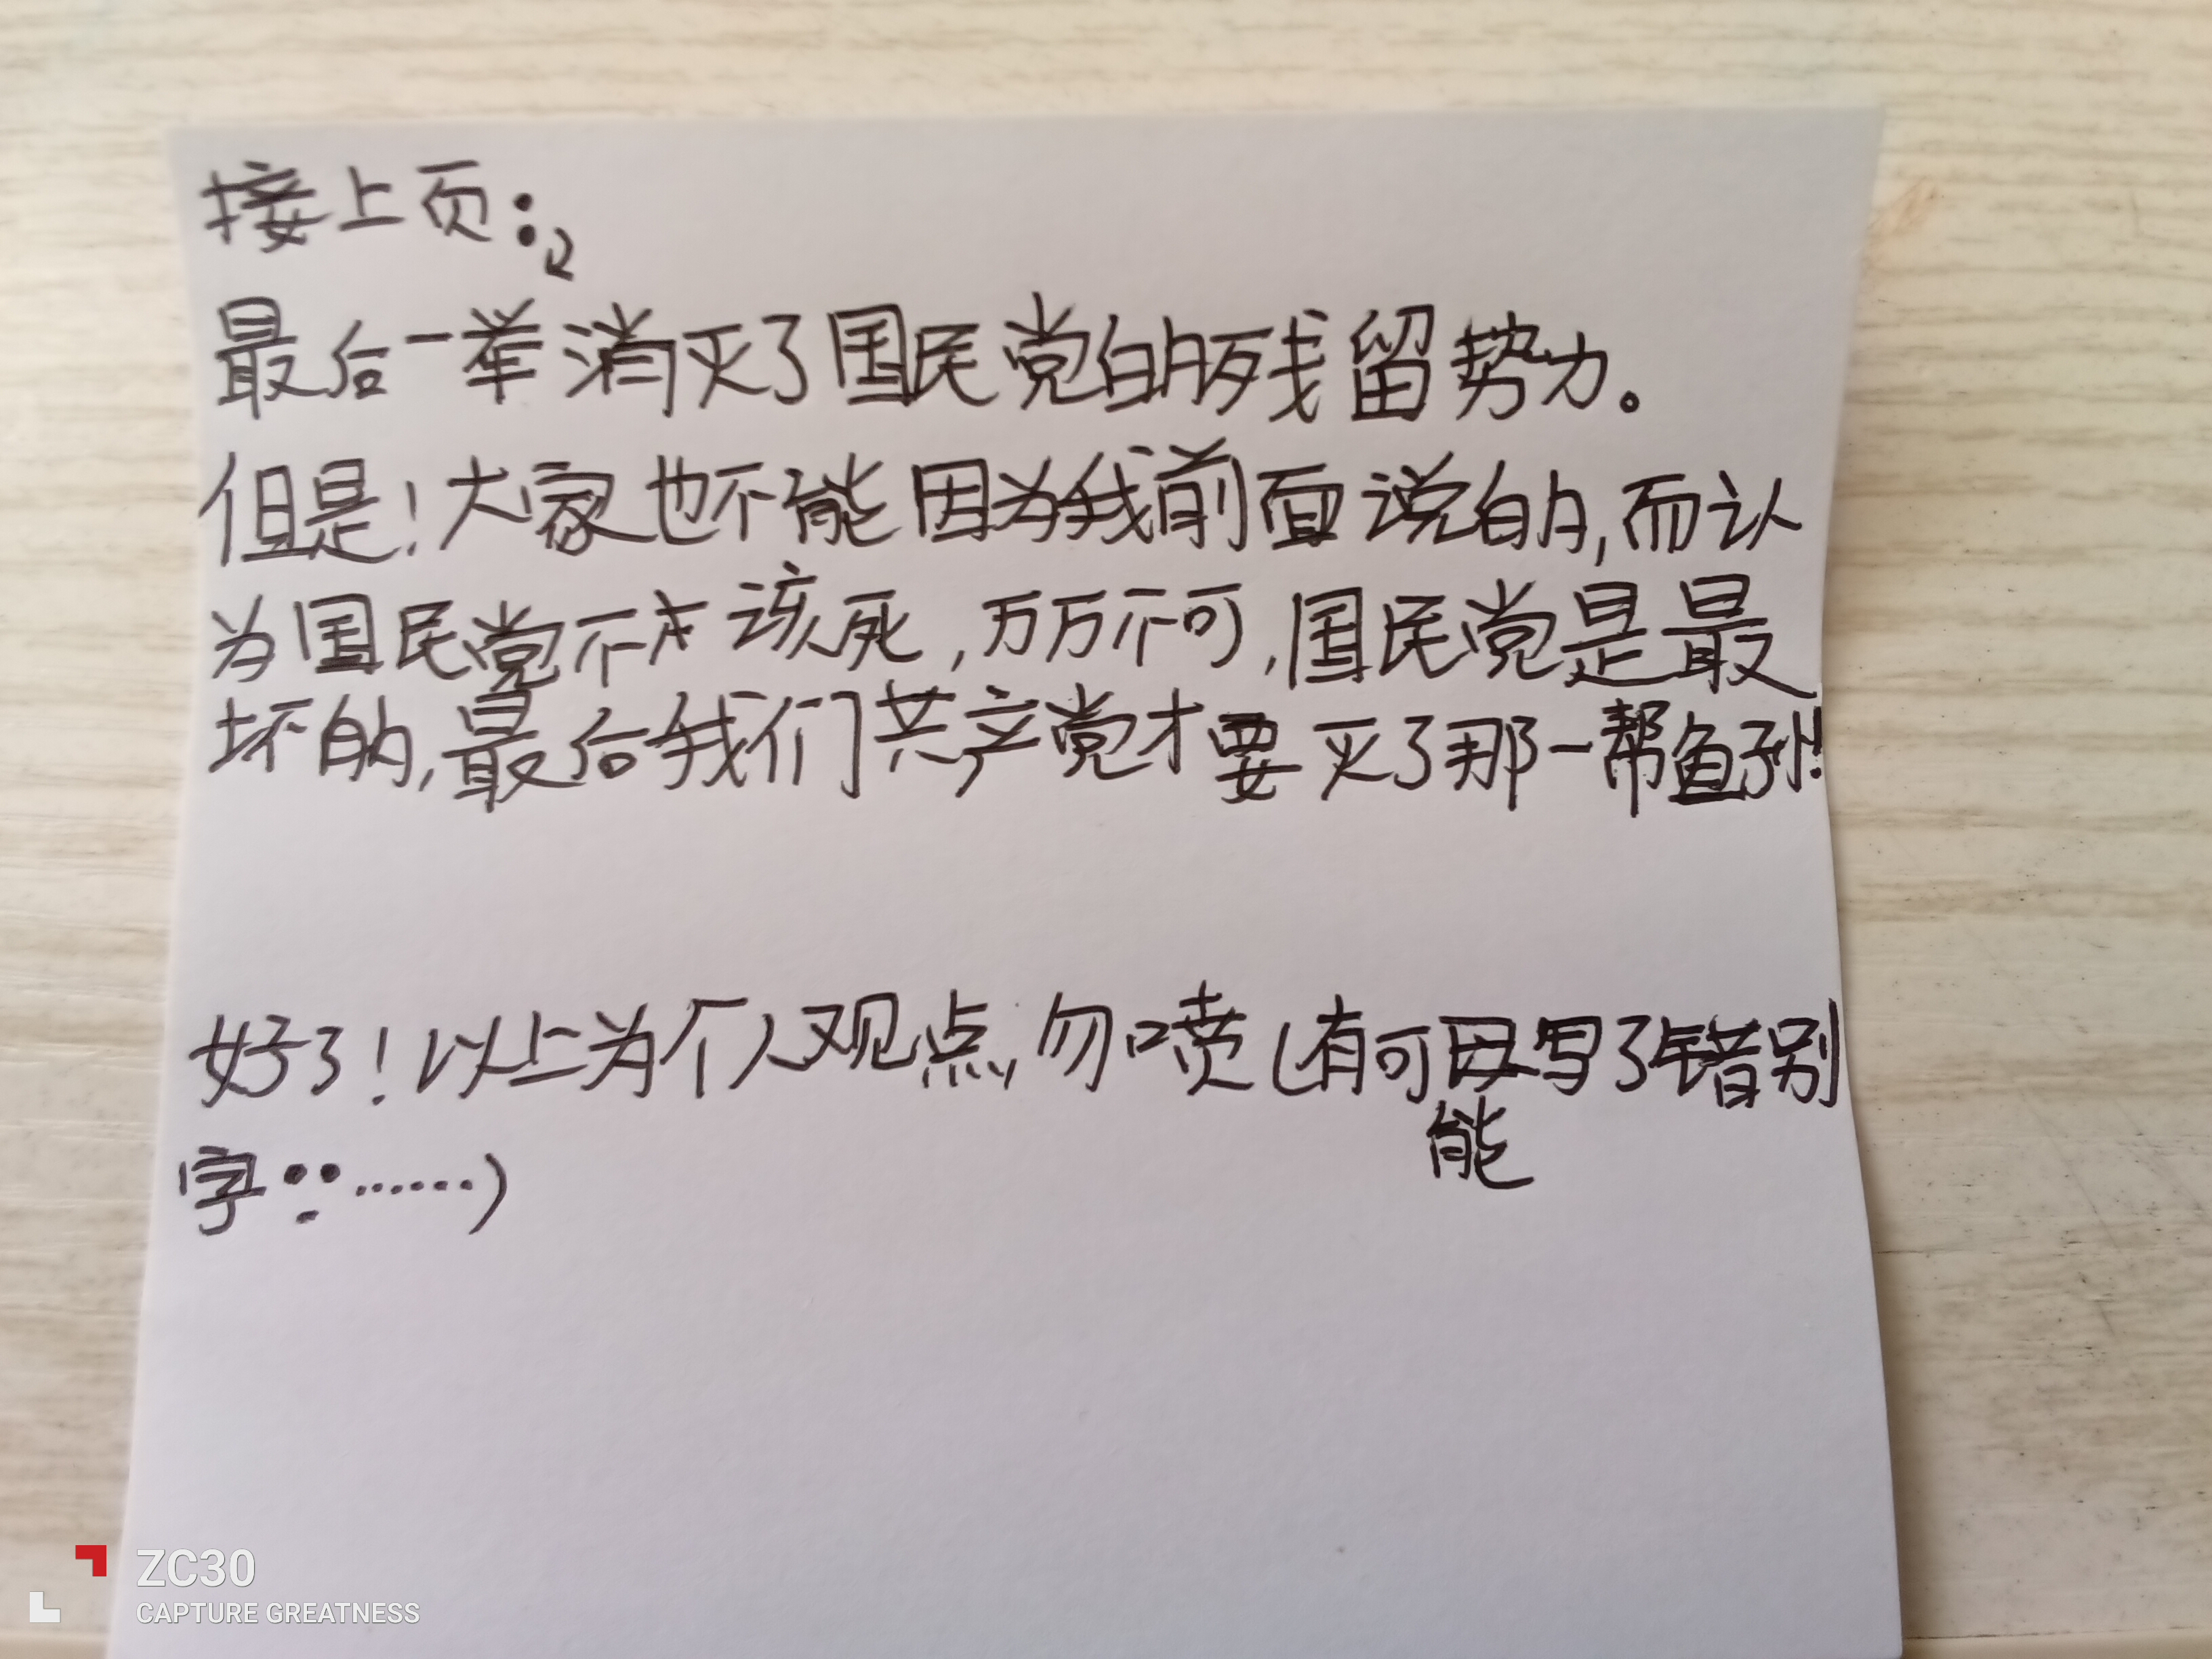 接上页：
最后一举消灭了国民党的残留势力。
但是！大家也不能因为我前面说的，而认
为国民党不该死，万万不可，国民党是最
坏的，最后我们共产党才要灭了那一帮鱼孙！
好了！以上为个人观点，勿喷（有可能写了错别
字……）
ZC30
CAPTURE GREATNESS